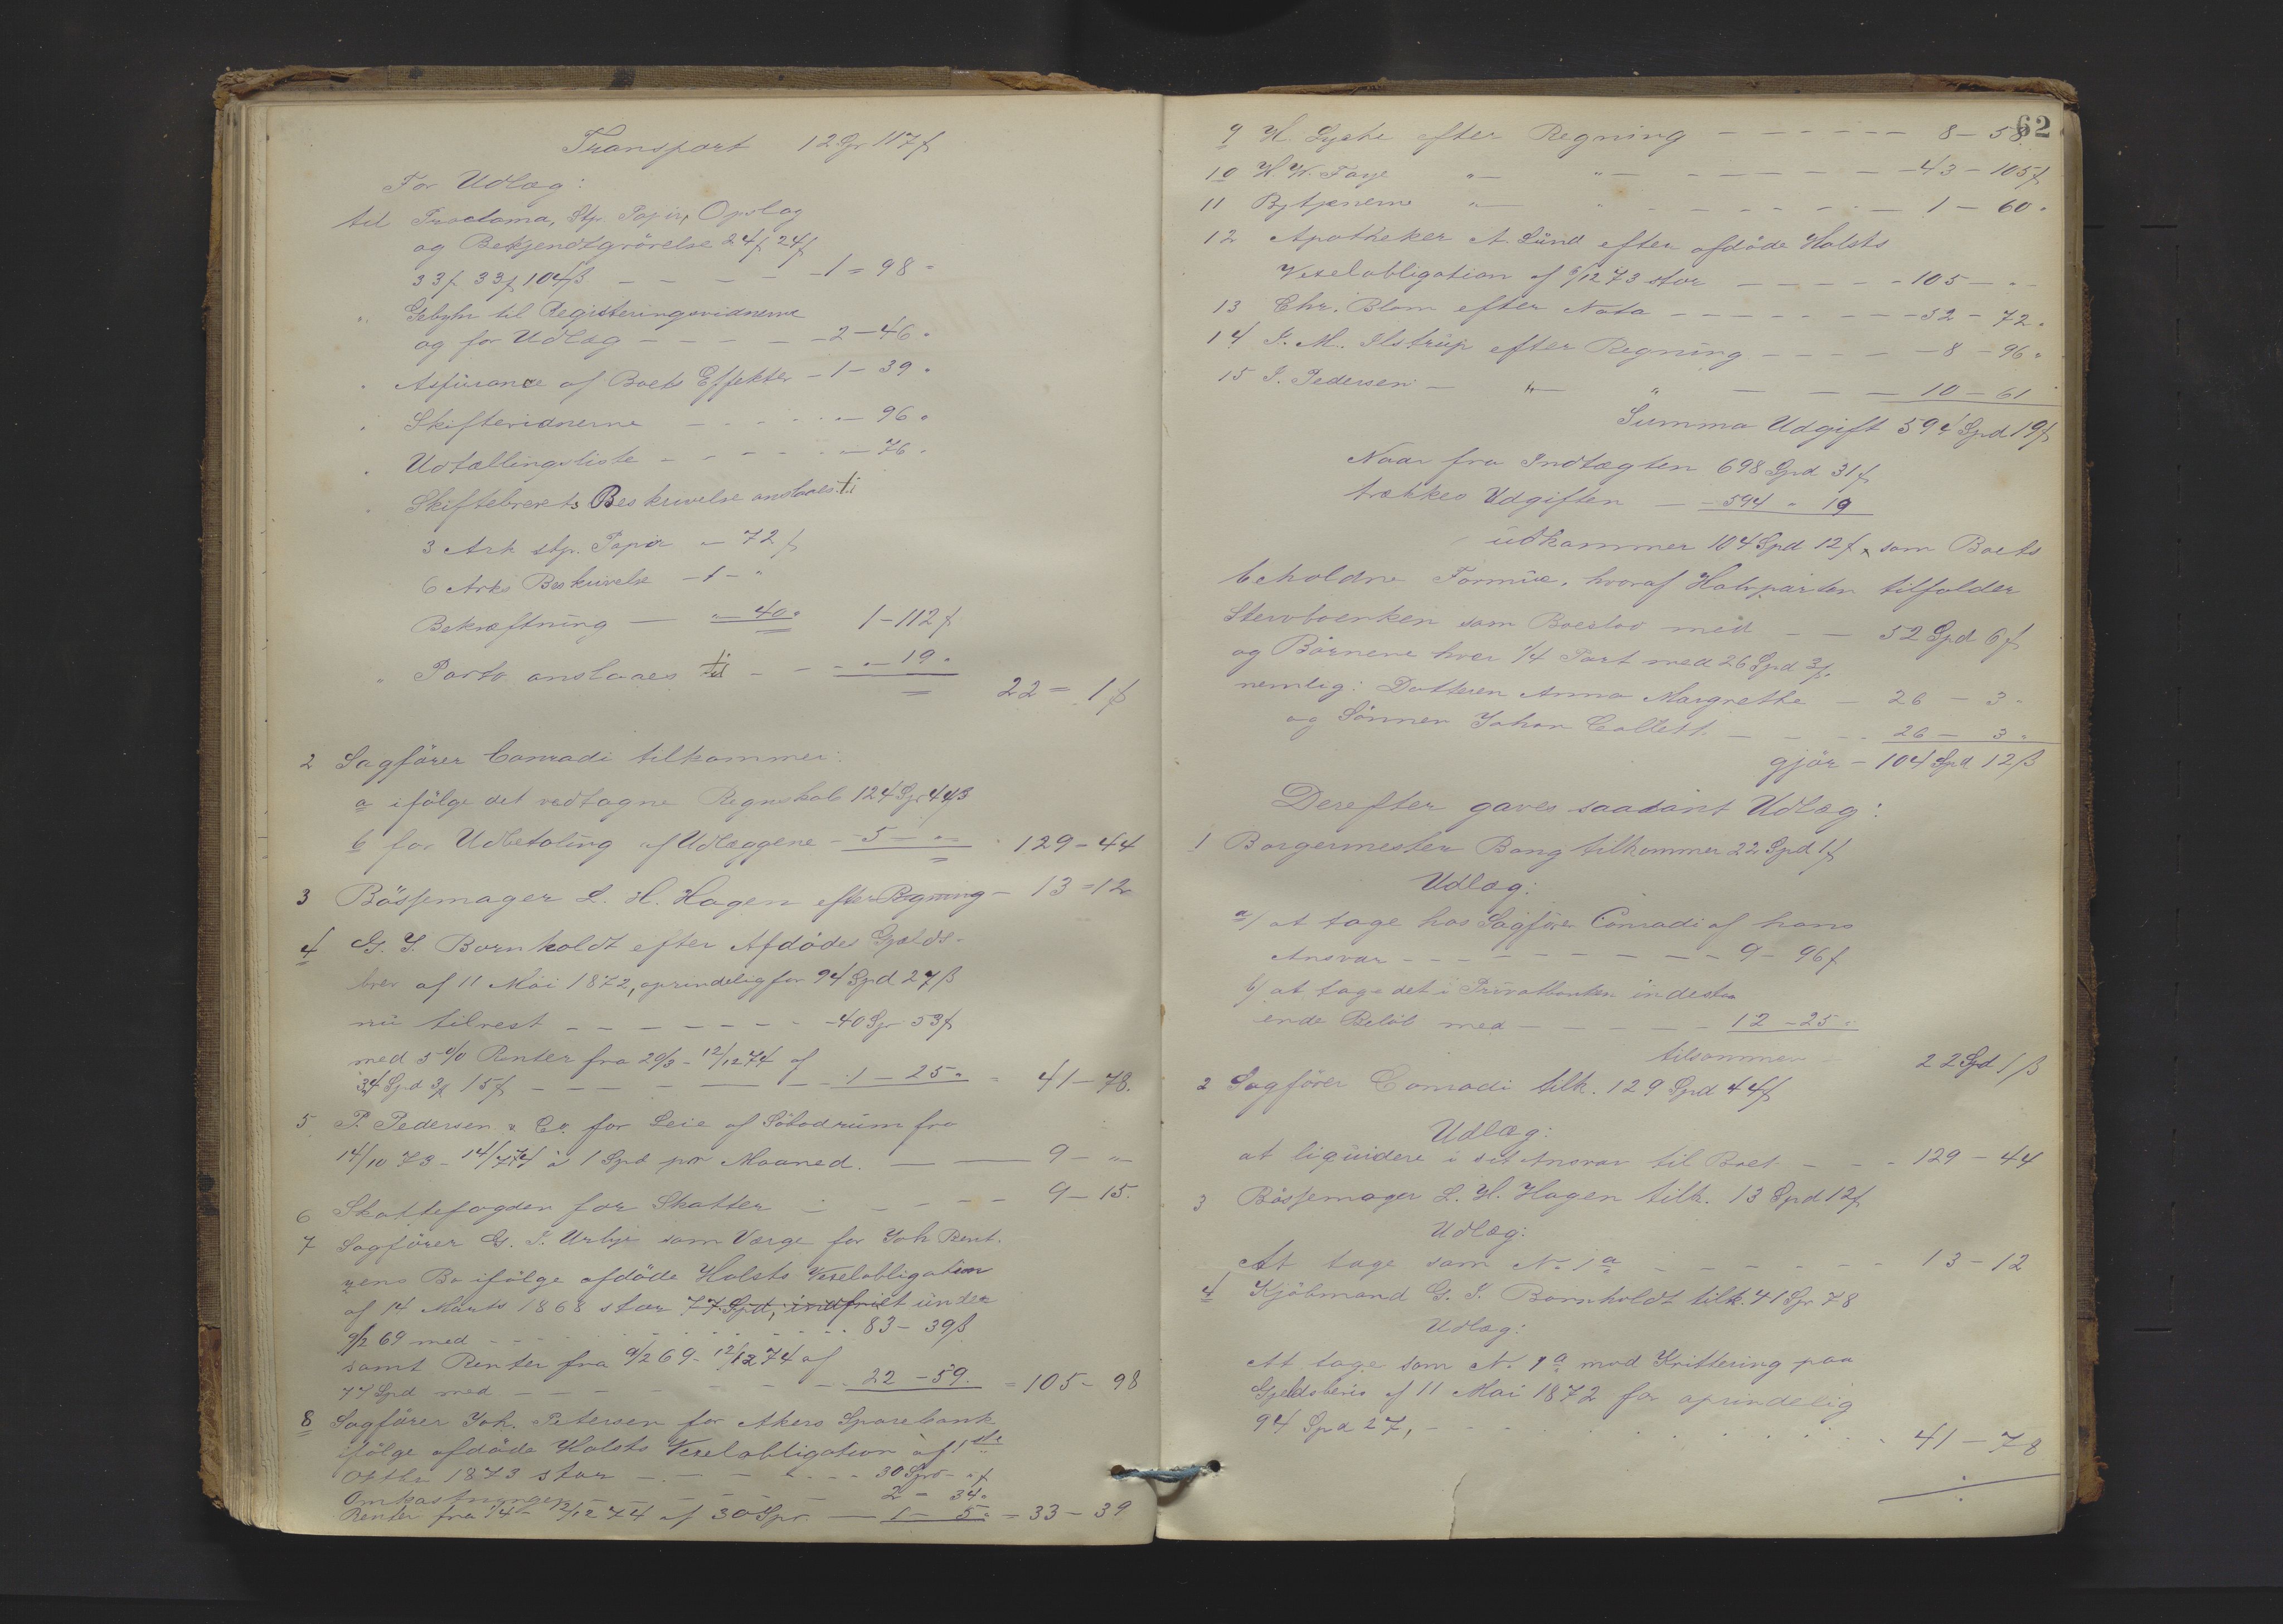 Transport 12 Spr 117 ß
For Udlæg:
til Proclama, Stp. Papir, Opslag
og Bekjendtgrörelse 24ß 24ß
33ß 33ß 104ß - - - - - 1 - 98 "
" Gebyhr til Registeringsvidnerne
og for Udlæg - - - - - 2 - 46 "
" Assurance af Boets Effekter - 1 - 39 "
" Skiftevidnerne - - - - " - 96 "
" Udtællingsliste - - - - - " - 76 "
" Skiftebrevets Beskrivelse anslaaes ti
3 Ark stp. Papir " - 72 ß
6 Arks Beskrivelse - 1 - "
Bekræftning - " - 40 " 1 - 112 ß
" Porto anslaaes til - - " - 19 "
22 = 1 ß
2 Sagförer Conradi tilkommer:
a ifölge det vedtagne Regnskab 124 Spr 44ß
b for Udbetaling af Udlæggene - 5 - " - 129 - 44
3 Bössemager L. H. Hagen efter Regning - 13 = 12
4 G. J. Bornholdt efter Afdödes Gjælds-
brev af 11 Mai 1872, oprindelig for 94 Spd 27 ß
nu tilrest - - - - - - - 40 Spr 53 ß
med 5 % Renter fra 20/3 - 12/12 74 af
34 Spd 3ß 15ß - - - - - - 1 - 25 " = 41 - 78.
5 P. Pedersen & Co. for Leie af Söbodrum fra
14/10 73 - 14/7 74 à 1 Spd pr Maaned. - - 9 - " -
6 Skattefogden for Skatter - - - - - 9 - 15.
7 Sagförer G. J. Urbye som Værge for Joh Rent.
zens Bo ifölge afdöde Holsts Vexelobligation
af 14 Marts 1868 stor 77 Spd, indfriet under
9/2 69 med - - - - - - - - 83 - 39ß
samt Renter fra 9/2 69 - 12/12 74 af
77 Spd med - - - - - - - 22 - 59. = 105 - 98
8 Sagförer Joh. Petersen for Akers Sparebank
ifölge afdöde Holsts Vexelobligation af 1ste
Oktbr 1873 stor - - - - - - 30 Spr - " ß
Omkostninger - - - - - - 2 = 34 "
Renter fra 1/4 - 12/12 74 af 30 Spr. - 1 - 5 " = 33 - 39
62
9 H. Gjete efter Regning - - - - - - 8 - 58.
10 H W. Faye " - " - - - - - - 43 - 105ß
11 Bytjenerne " - " - - - - - - 1 - 60 "
12 Apotheker A Lünd efter afdöde Holsts
Vexelobligation af 6/12 73 stor - - - - - 105 - " -
13 Chr. Blom efter Nota - - - - - - - 32 - 72 "
14 J. M. Ilstrup efter Regning - - - - - 8 - 96 "
15 J. Pedersen - " - " - - - - 10 - 61
Summa Udgift 594 Spd 19ß
Naar fra Indtægten 698 Spd 31 ß
trækkes Udgiften - - 594 " 19
udkommer 104 Spd 12 ß, som Boets
beholdne Formue, hvoraf Halvparten tilfalder
Stervboenken som Boeslod med - - 52 Spd 6 ß
og Börnene hver 1/4 Part med 26 Spd 3ß.
nemlig: Datteren Anna Margrethe - 26 - 3 "
og Sönnen Johan Collett. - - - - 26 - 3 "
gjör - 104 Spd 12 ß
Derefter gaves saadant Udlæg:
1 Borgermester Bang tilkommer 22 Spd 1 ß
Udlæg:
a/ at tage hos Sagförer Conradi af hans
Ansvar - - - - - - - - - 9 - 96 ß
b/ at tage det i Privatbanken indestaa
ende Belöb med - - - - - - 12 - 25 "
tilsammen - 22 Spd 1 ß
2 Sagförer Conradi tilk. 129 Spd 44ß
Udlæg:
at liquidere i sit Ansvar til Boet - - - 129 - 44
3 Bössemager L. H. Hagen tilk. 13 Spd 12 ß
Udlæg:
At tage som No 1 a - - - - - - 13 - 12
4 Kjöbmand G. J. Bornholdt tilk. 41 Spr 78
Udlæg:
At tage som No 1 a mod Kvittering paa
Gjeldsbevis af 11 Mai 1872 for oprindelig
94 Spd 27, - - - - - - - - 41 - 78